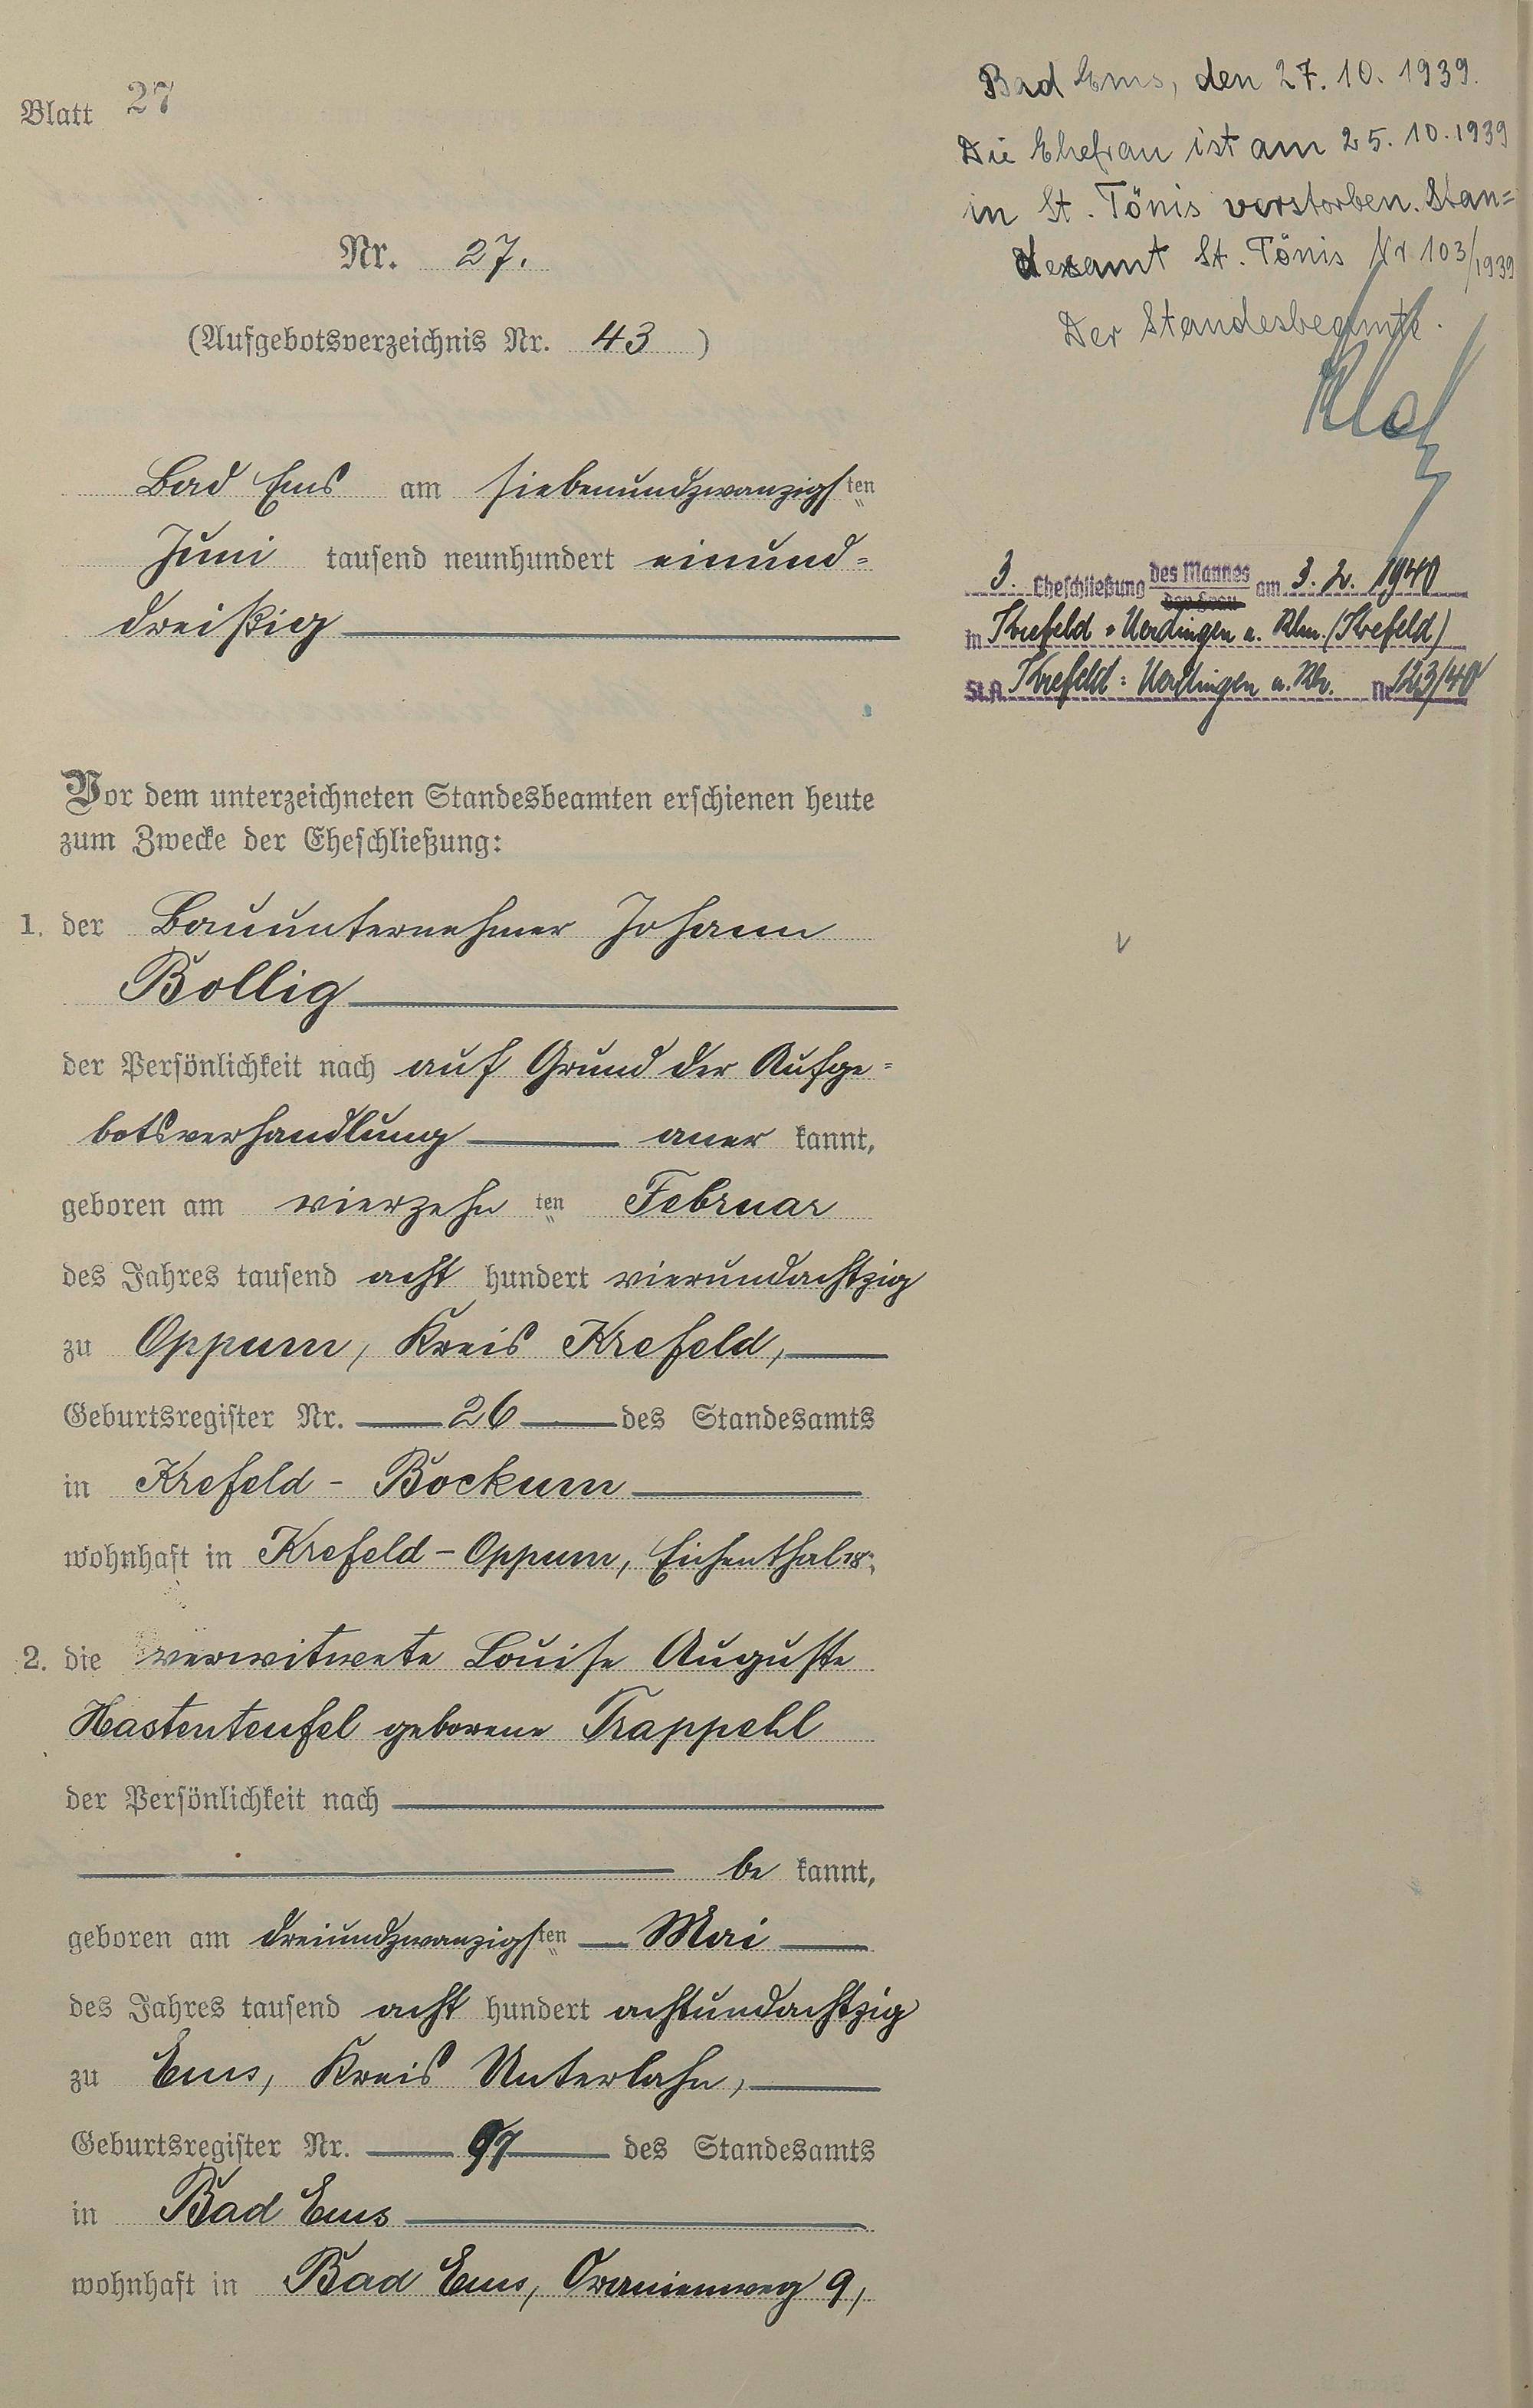 Blatt 27
Nr. 27.
(Aufgebotsverzeichnis Nr. 43)
Bad Ems am siebenundzwanzigsten
Juni tausend neunhundert einund=
dreißig
Vor dem unterzeichneten Standesbeamten erschienen heute
zum Zwecke der Eheschließung:
1. der Bauunternehmer Johann
Bollig
der Persönlichkeit nach auf Grund der Aufge=
botsverhandlung aner kannt,
geboren am vierzehn ten Februar
des Jahres tausend acht hundert vierundachtzig
zu Oppum, Kreis Krefeld,
Geburtsregister Nr. 26 des Standesamts
in Krefeld - Bockum
wohnhaft in Krefeld - Oppum, Eichenthal 18;
2. die verwitwete Louise Auguste
Hastenteufel geborene Trappehl
der Persönlichkeit nach
be kannt,
geboren am dreiundzwanzigsten Mai
des Jahres tausend acht hundert achtundachtzig
zu Ems, Kreis Unterlahn,
Geburtsregister Nr. 97 des Standesamts
in Bad Ems
wohnhaft in Bad Ems, Oranienweg 9,
Bad Ems, den 27. 10. 1939.
Die Ehefrau ist am 25. 10. 1939
in St. Tönis verstorben. Stan=
desamt St. Tönis Nr. 103/1939
Der Standesbeamte.
3. Eheschließung des Mannes der Frau am 3. 2. 1940
in Krefeld = Uerdingen a. Rhn. (Krefeld)
St.A. Krefeld = Uerdingen a. Rh. Nr. 123/40